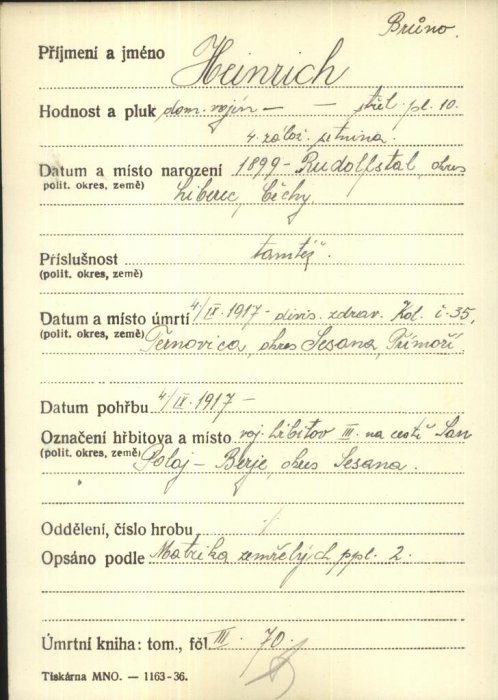 Brůno.
Příjmení a jméno Heinrich
Hodnost a pluk dom. vojín — — střel. pl. 10.
4. zálož. setnina.
Datum a místo narození 1899 - Rudolfstal, okres
(polit. okres, země) Liberec, Čechy.
Příslušnost tamtéž.
(polit. okres, země)
Datum a místo úmrtí 4/IX. 1917 - divis. zdrav. Kol. č. 35,
(polit. okres, země) Ternovica, okres Sesana, Přímoří.
Datum pohřbu 4/IX. 1917 —
Označení hřbitova a místo voj. hřbitov III. na cestě San
(polit. okres, země) Polaj - Berje, okres Sesana.
Oddělení, číslo hrobu
Opsáno podle Matrika zemřelých ppl. 2.
Úmrtní kniha: tom., fol. III. 70.
Tiskárna MNO. — 1163-36.